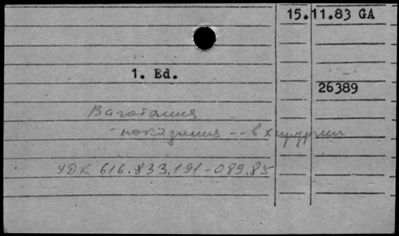 15.11.83 GA
1. Ed.
26389
Ваготомия
- показания - - в хирургии
УДК 616.833.191-089.85